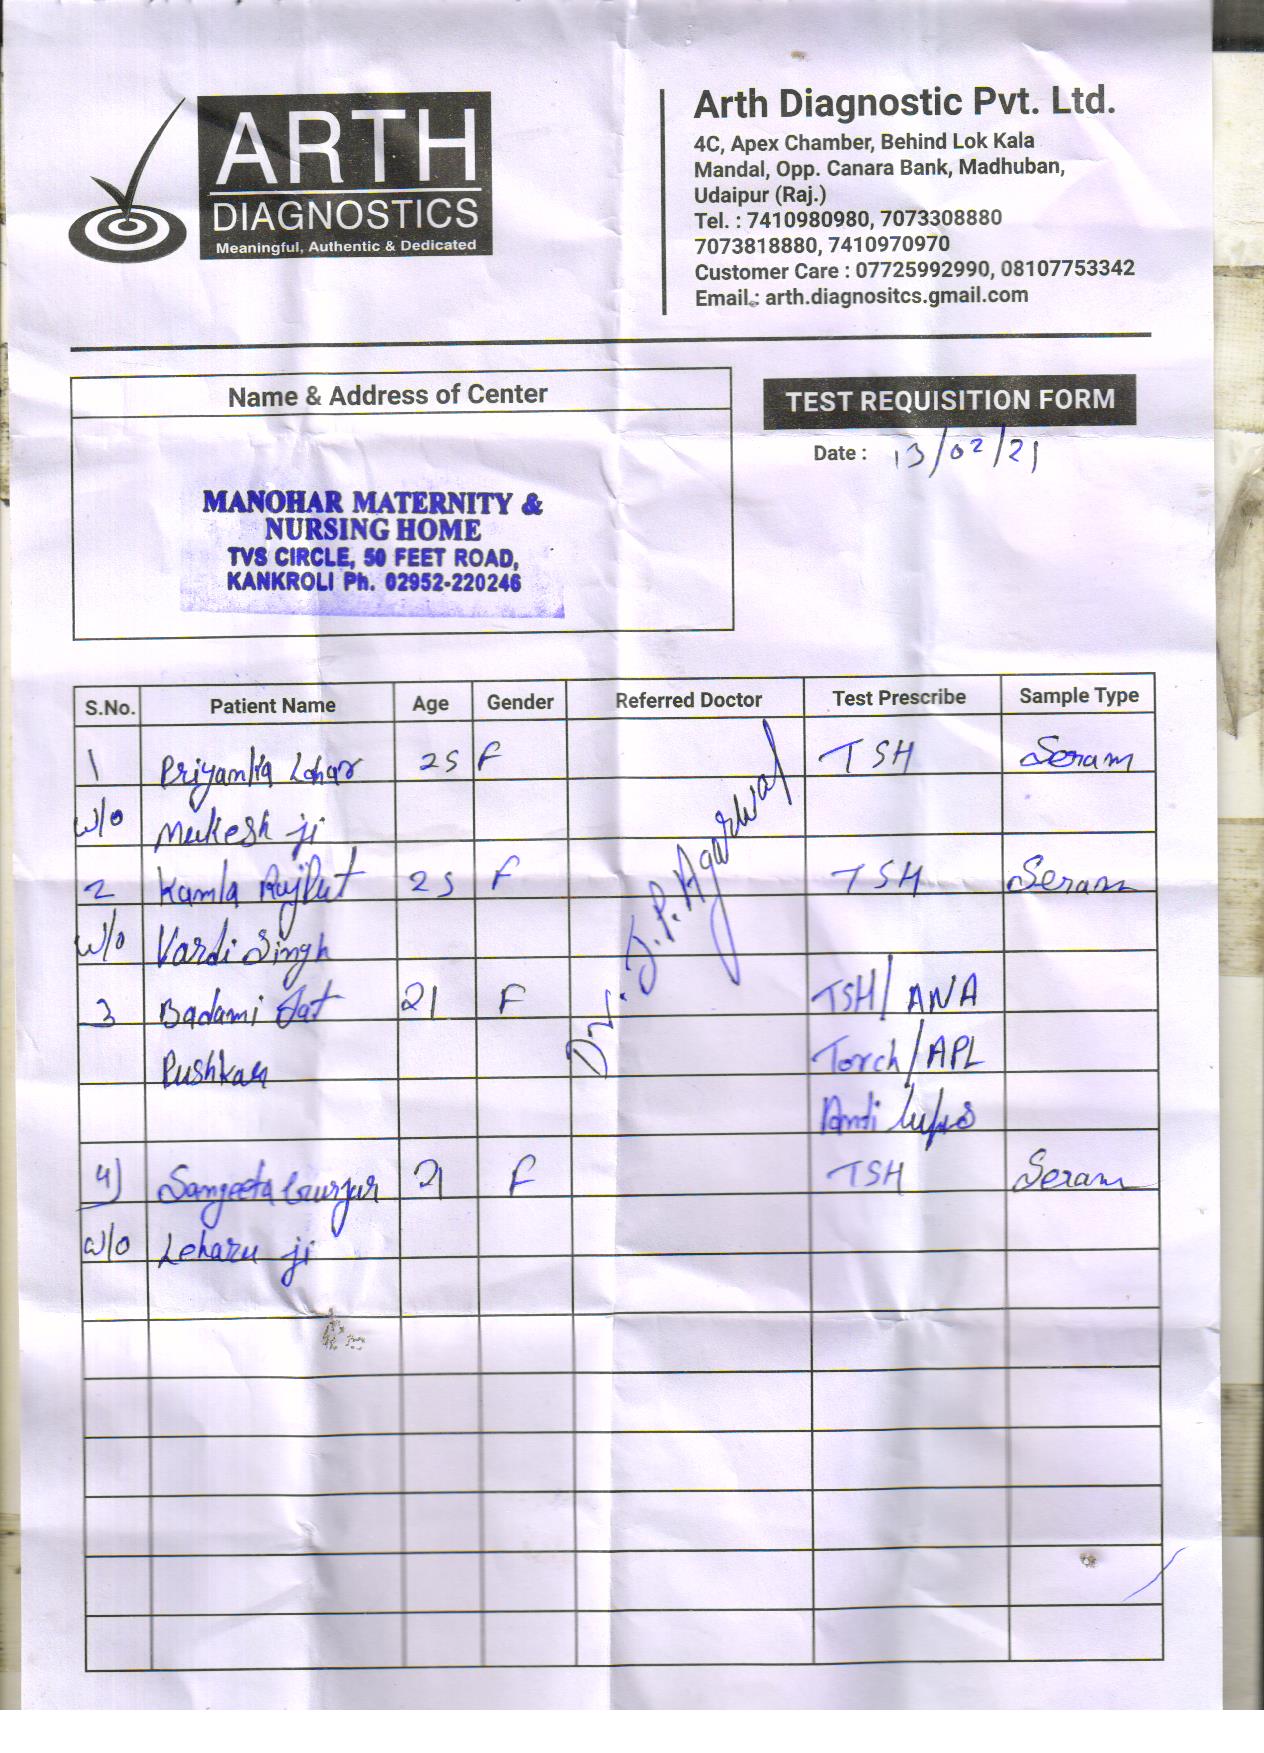 ARTH
DIAGNOSTICS
Meaningful, Authentic & Dedicated
Arth Diagnostic Pvt. Ltd.
4C, Apex Chamber, Behind Lok Kala
Mandal, Opp. Canara Bank, Madhuban,
Udaipur (Raj.)
Tel. : 7410980980, 7073308880
7073818880, 7410970970
Customer Care : 07725992990, 08107753342
Email.: arth.diagnositcs.gmail.com
Name & Address of Center
MANOHAR MATERNITY &
NURSING HOME
TVS CIRCLE, 50 FEET ROAD,
KANKROLI Ph. 02952-220246
TEST REQUISITION FORM
Date : 13/02/21
S.No. Patient Name Age Gender Referred Doctor Test Prescribe Sample Type
1 Priyamka Lohar 25 F TSH Seram
w/o Mukesh ji
2 Kamla Rajput 25 F TSH Seram
w/o Vardi Singh
Dr. J.P. Agarwal
3 Badami Jat 21 F TSH/ANA
Pushkar Torch/APL
Anti lupus
4) Sangeeta Gurjar 21 F TSH Seram
w/o Leharu ji